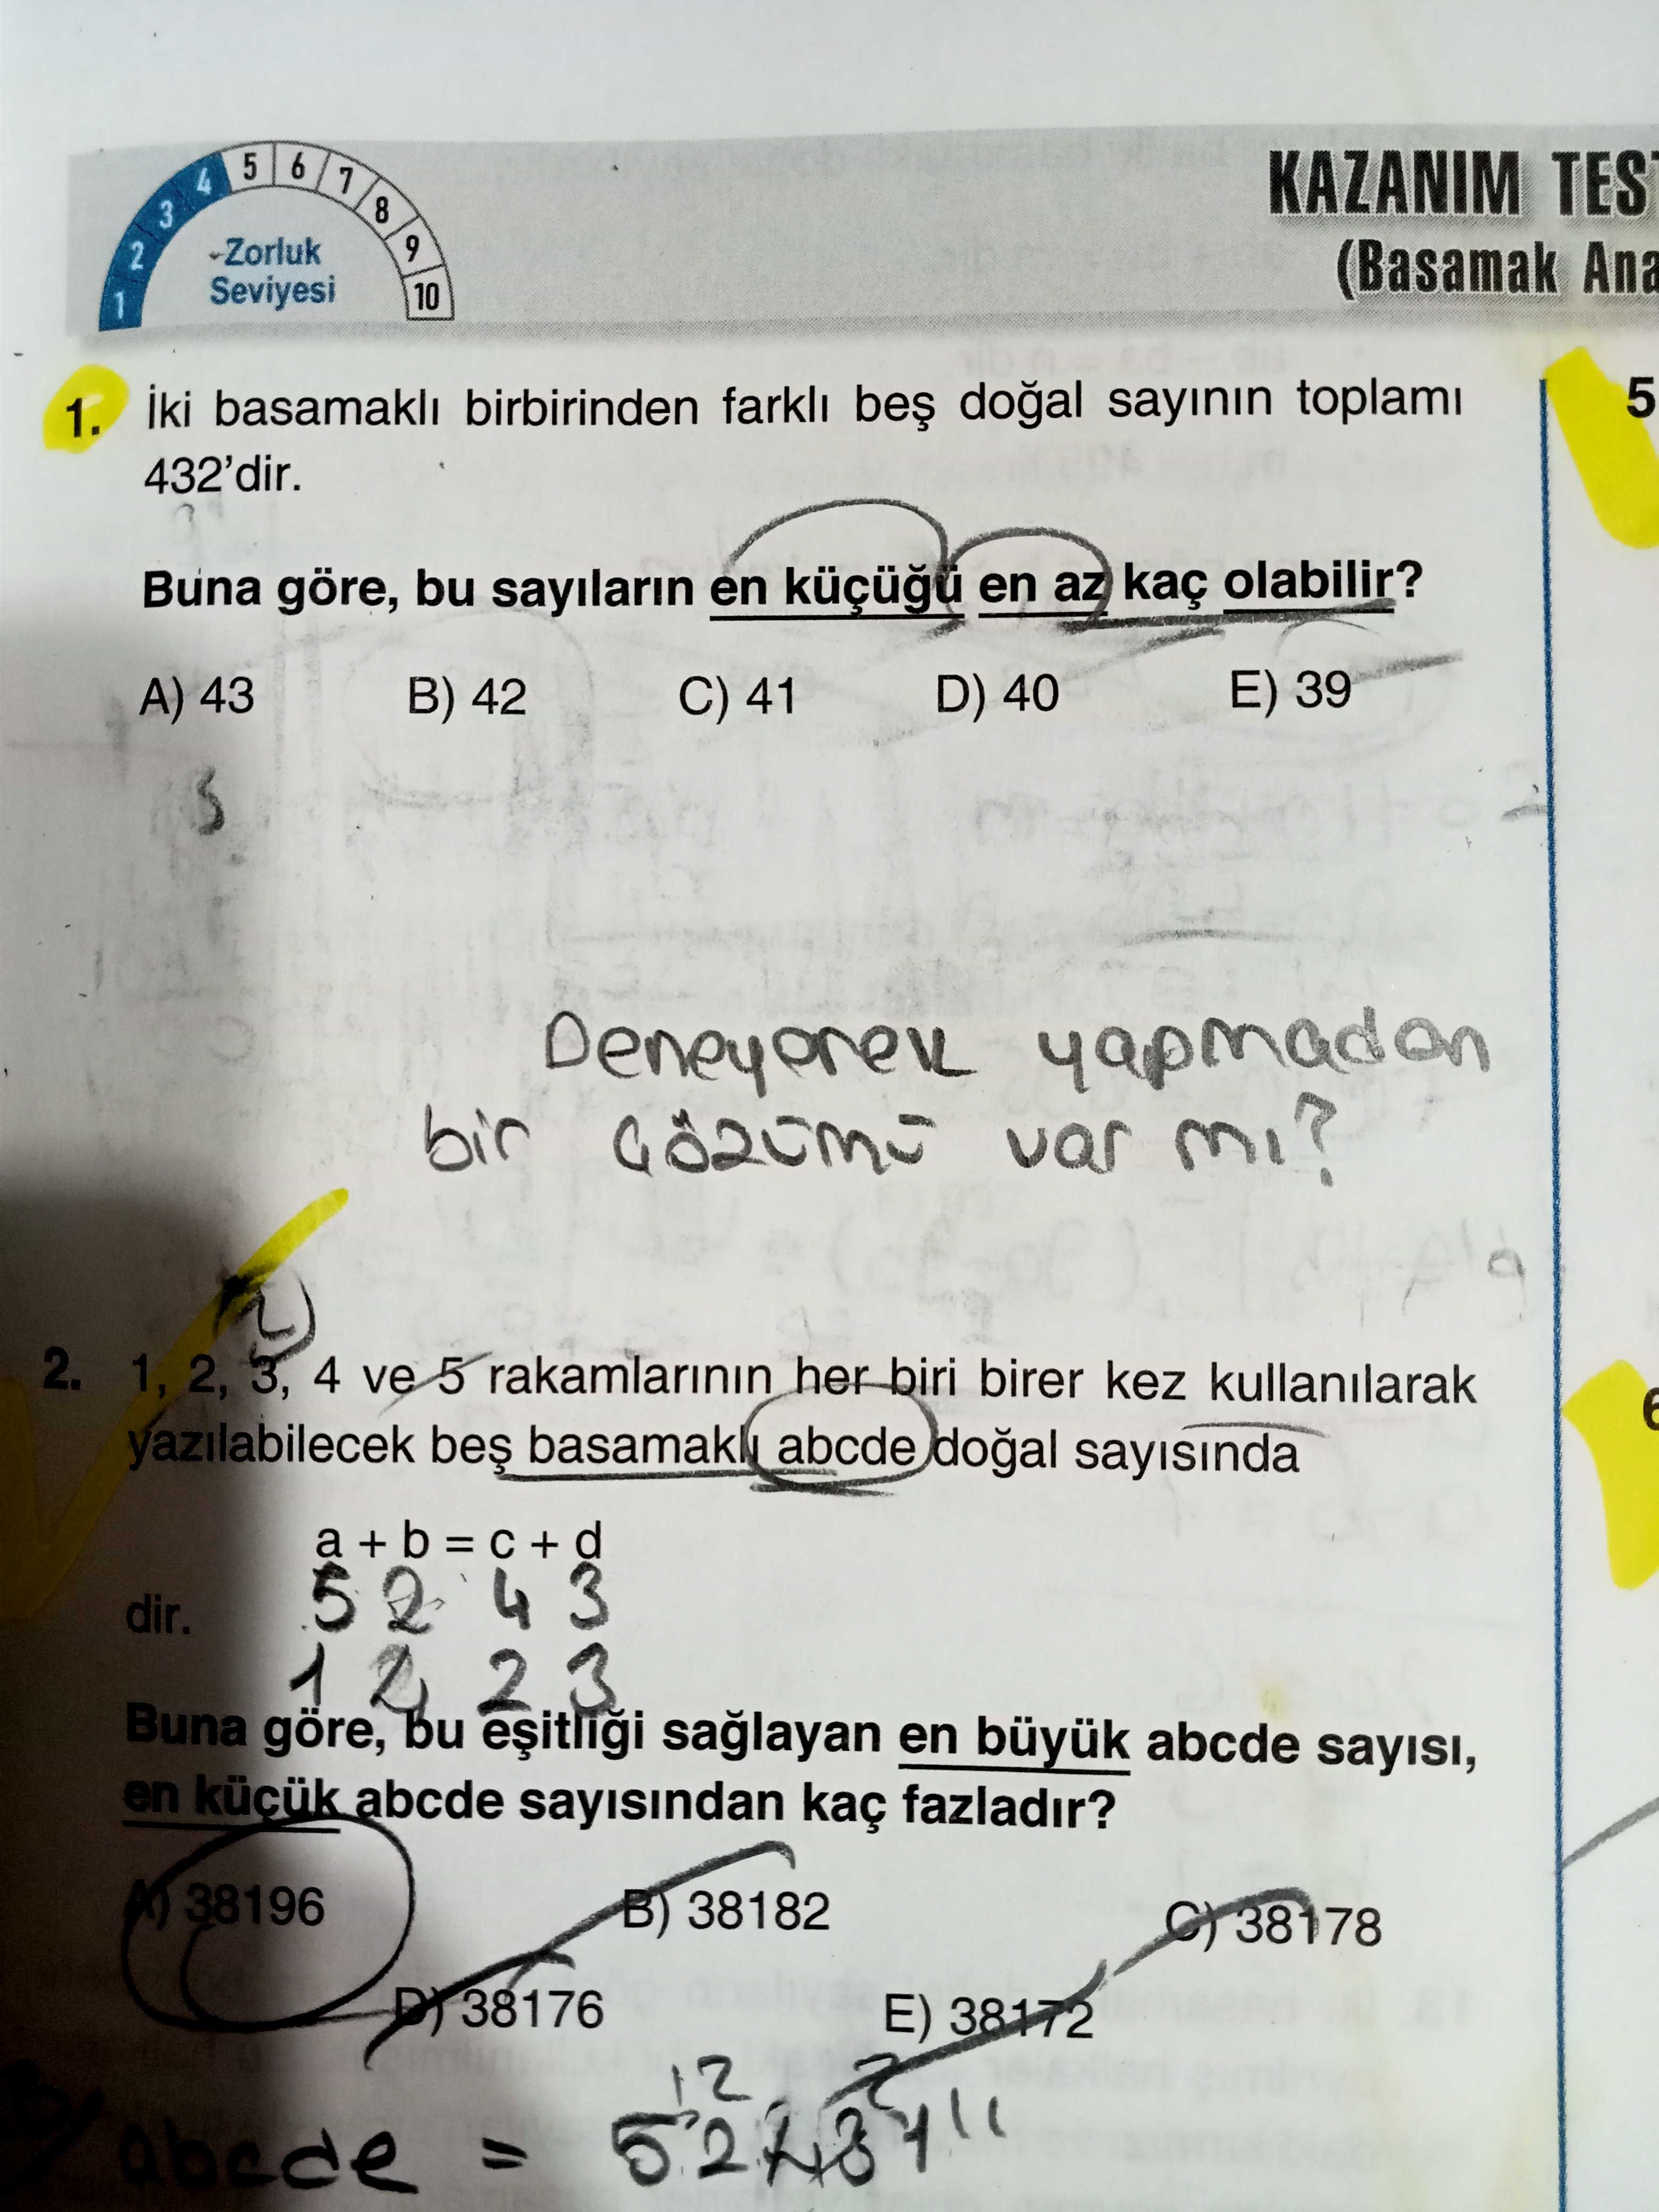 1 2 3 4 5 6 7 8 9 10
Zorluk
Seviyesi
KAZANIM TES
(Basamak Ana
1. İki basamaklı birbirinden farklı beş doğal sayının toplamı
432'dir.
Buna göre, bu sayıların en küçüğü en az kaç olabilir?
A) 43 B) 42 C) 41 D) 40 E) 39
5
Deneyerek yapmadan
bir çözümü var mı?
2. 1, 2, 3, 4 ve 5 rakamlarının her biri birer kez kullanılarak
yazılabilecek beş basamaklı abcde doğal sayısında
6
a + b = c + d
5 2 4 3
dir.
1 2 3
Buna göre, bu eşitliği sağlayan en büyük abcde sayısı,
en küçük abcde sayısından kaç fazladır?
A) 38196 B) 38182 C) 38178
D) 38176 E) 38172
12
abcde = 52